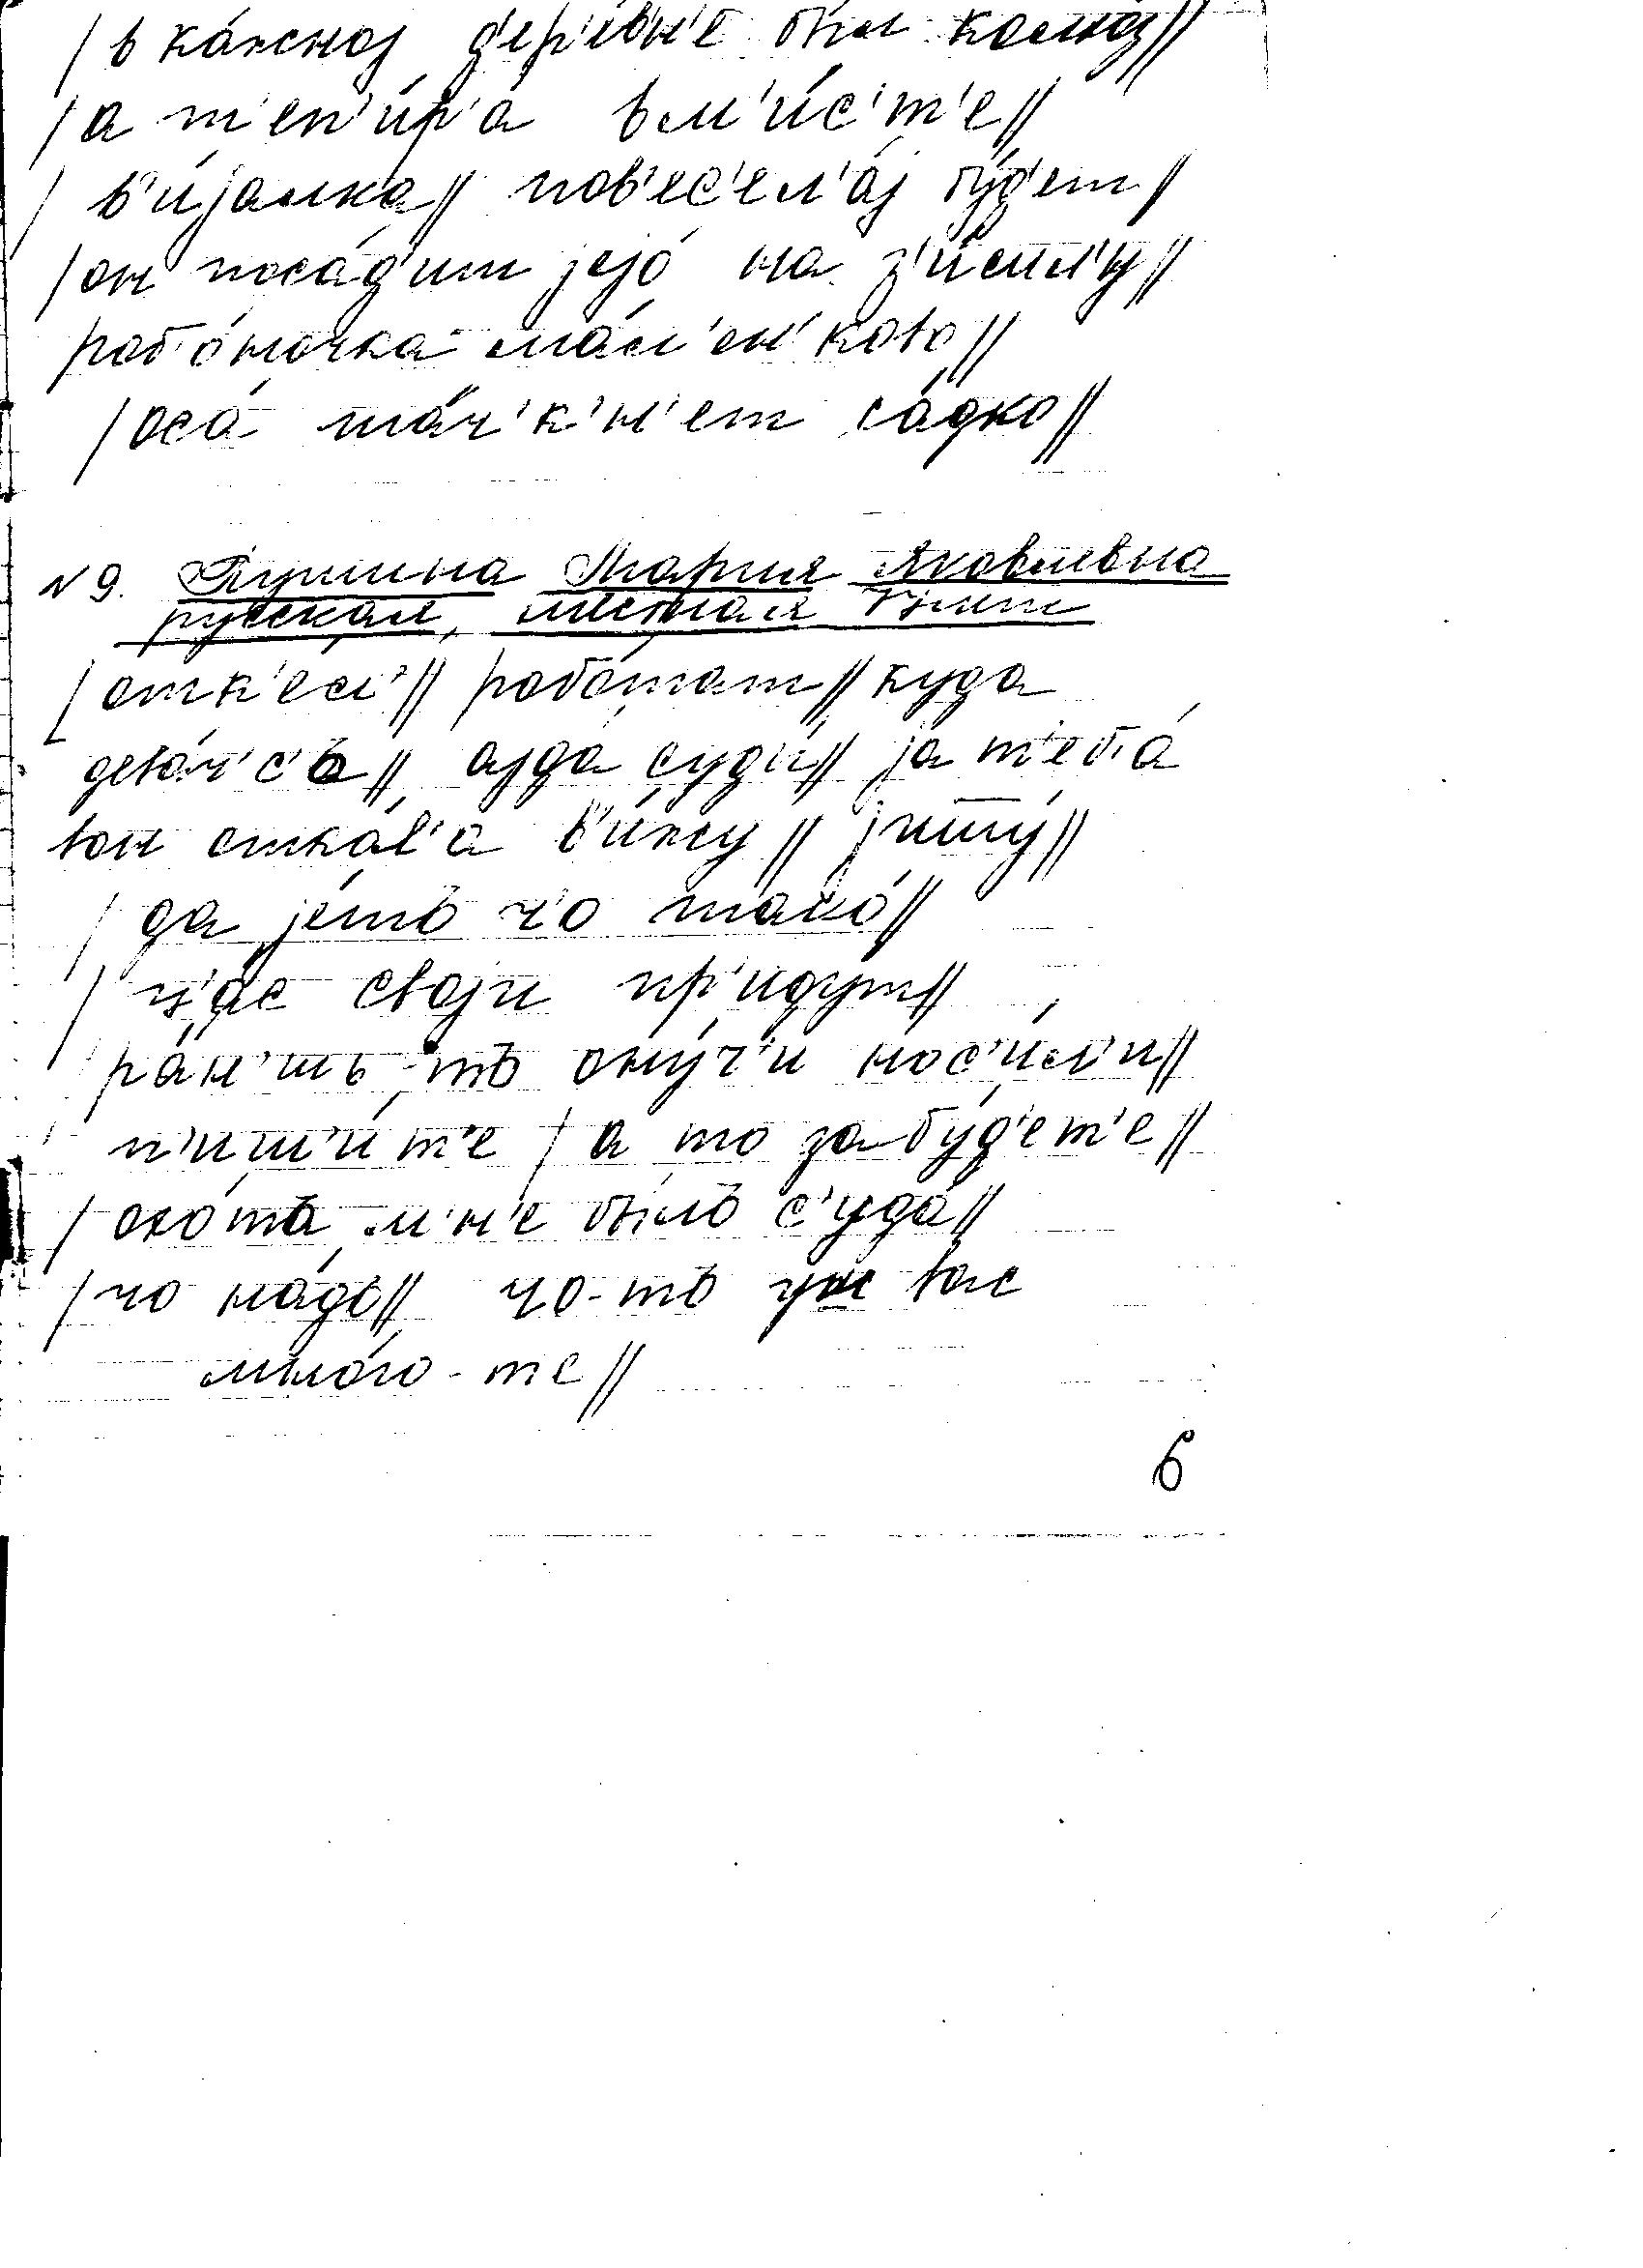 / в ка́жноj д'ер'е́вн'е был колхо́з//
/ а т'еп'и́р'а в м'и́с'т'е//
/ в'и́jалка// пов'ес'ел'а́j бу́д'ет/
/ он поса́д'ит jejо́ на з'и́мл'у//
роб'о́ночка ма́л'ен'ково//
/ оса́ та́ч'к'н'ет са́дко//
N 9. Мария Яковлевна
русская, местная
отк'ес'// рабо́тат// куда
дева́т'с'ъ// аjда суды́// jа т'еб'а́
вон откл'а́ в'и́жу// jишу́//
/ да jе́тъ ч'о тако́//
/ ч'ас своjи пр'иду́т//
ра́н'шъ-тъ ону́ч'и нос'и́л'и//
п'иш'и́т'е / а то забу́д'ет'е//
/ охо́та м'н'е бы́лъ с'уда́//
/ чо на́дъ// чо-тъ уж вас
мно́го-те//
6